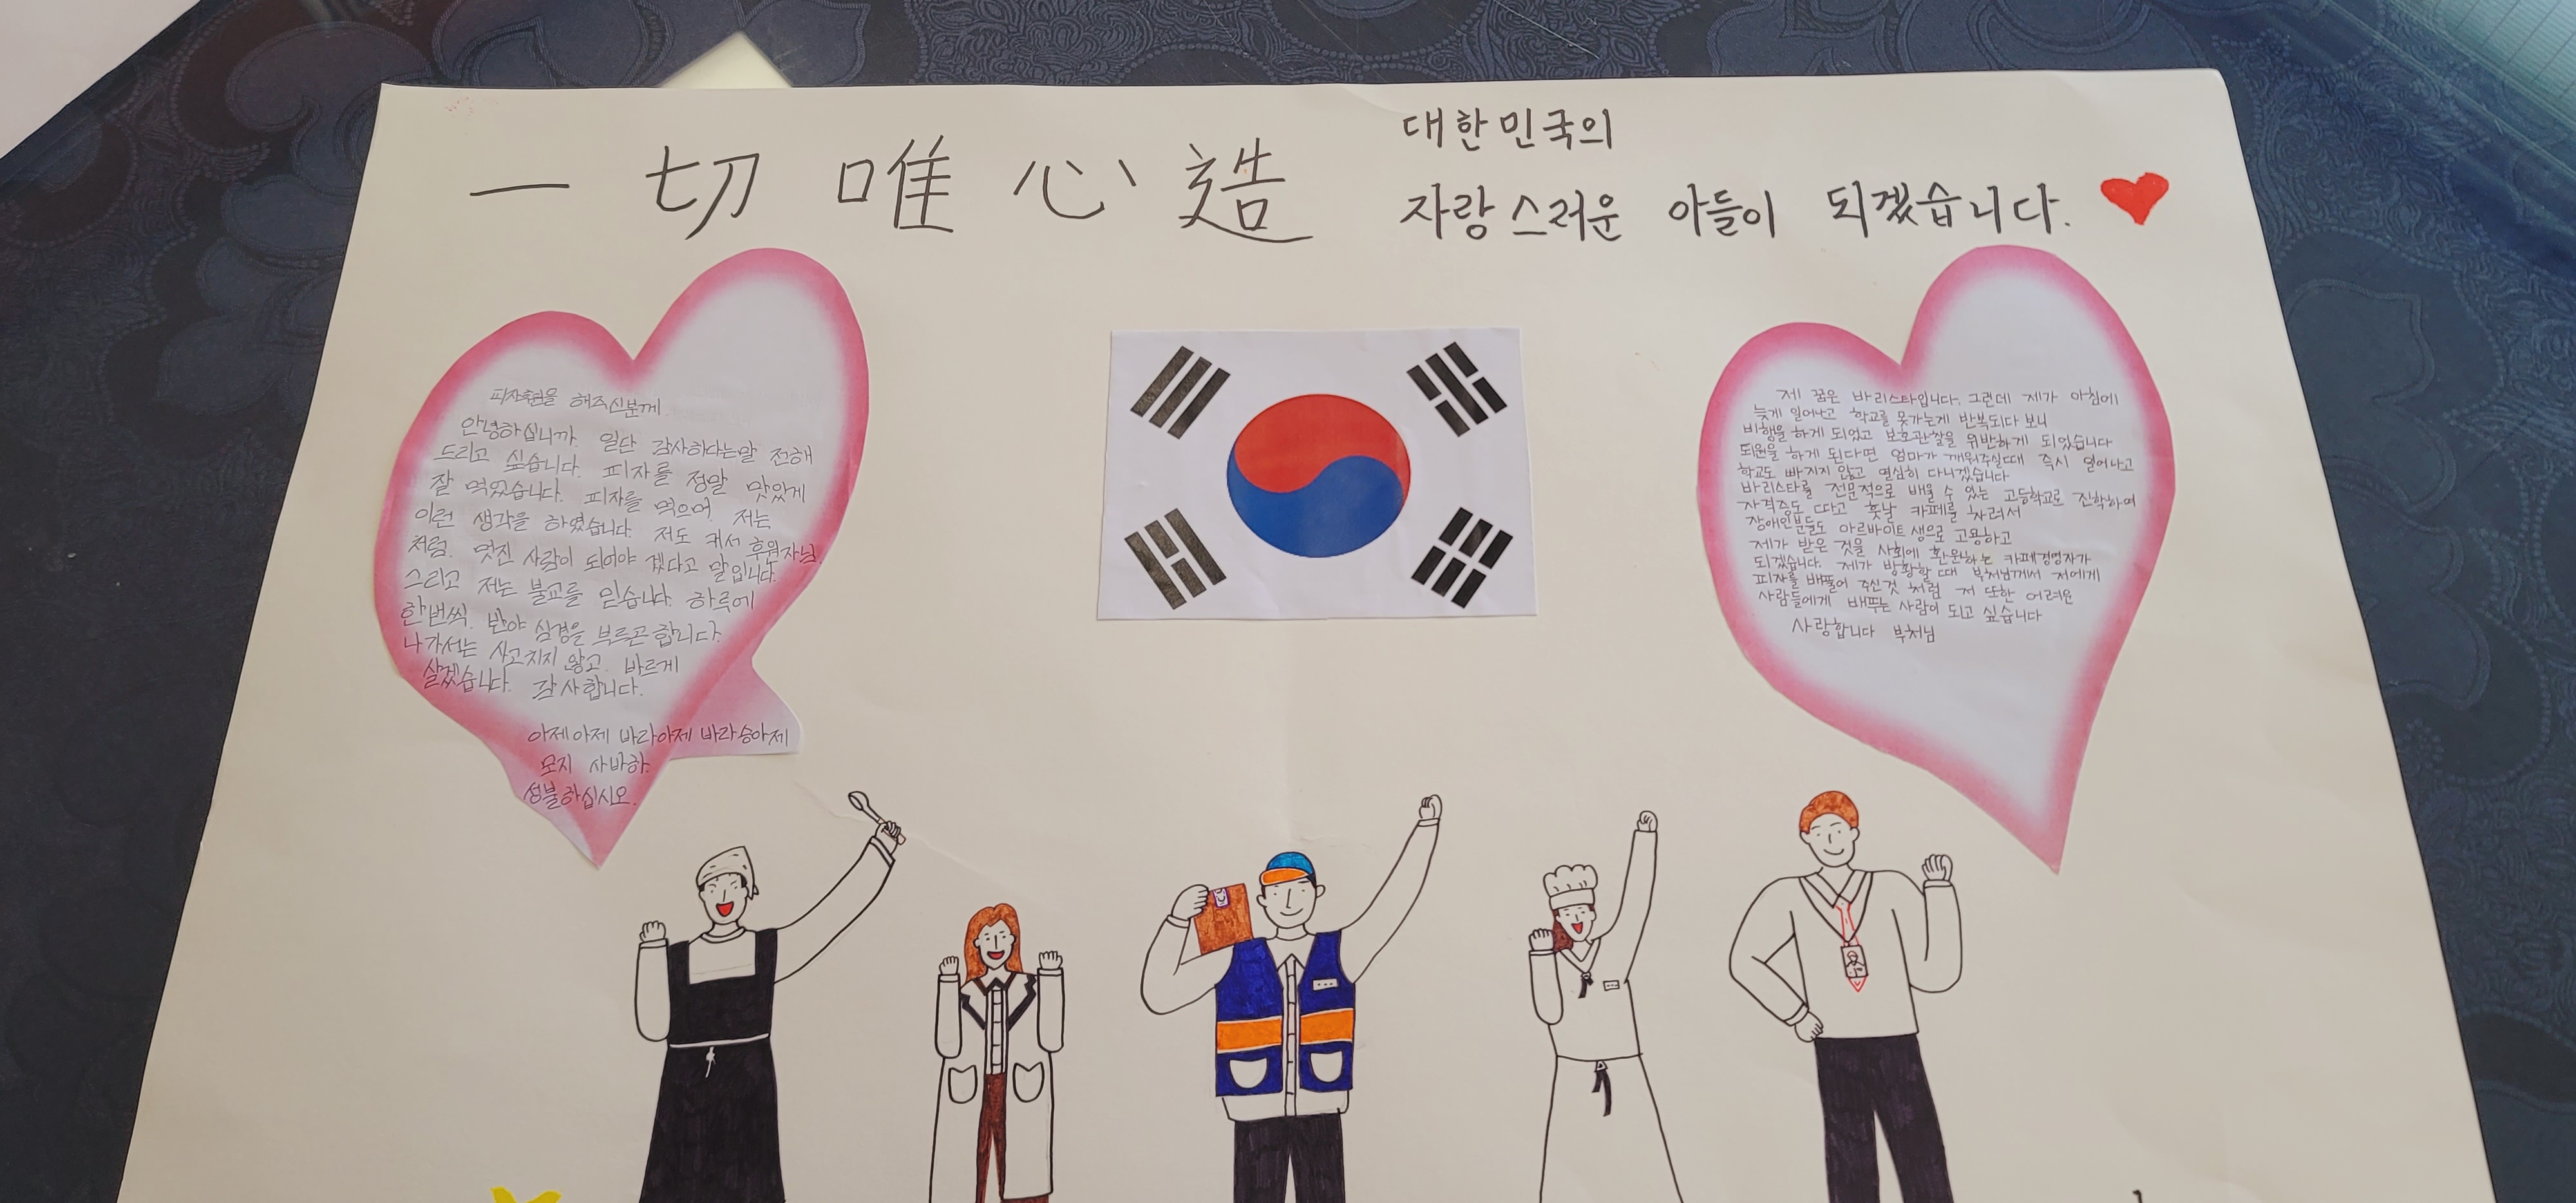 一切唯心造
대한민국의
자랑스러운 아들이 되겠습니다.
피자후원을 해주신분께
안녕하십니까. 일단 감사하다는말 전해
드리고 싶습니다. 피자를 정말 맛있게
잘 먹었습니다. 피자를 먹으며 저는
이런 생각을 하였습니다. 저도 커서 후원자님
처럼. 멋진 사람이 되어야 겠다고 말입니다.
그리고 저는 불교를 믿습니다. 하루에
한번씩. 반야 심경을 부르곤 합니다.
나가서는 사고치지 않고. 바르게
살겠습니다. 감사합니다.
아제아제 바라아제 바라승아제
모지 사바하.
성불하십시오.
제 꿈은 바리스타입니다. 그런데 제가 아침에
늦게 일어나고 학교를 못가는게 반복되다 보니
비행을 하게 되었고 보호관찰을 위반하게 되었습니다
퇴원을 하게 된다면 엄마가 깨워주실때 즉시 일어나고
학교도 빠지지 않고 열심히 다니겠습니다
바리스타를 전문적으로 배울 수 있는 고등학교로 진학하여
자격증도 따고 훗날 카페를 차려서
장애인분들도 아르바이트생으로 고용하고
제가 받은 것을 사회에 환원하는 카페경영자가
되겠습니다. 제가 방황할 때 부처님께서 저에게
피자를 베풀어 주신것 처럼 저 또한 어려운
사람들에게 베푸는 사람이 되고 싶습니다
사랑합니다 부처님